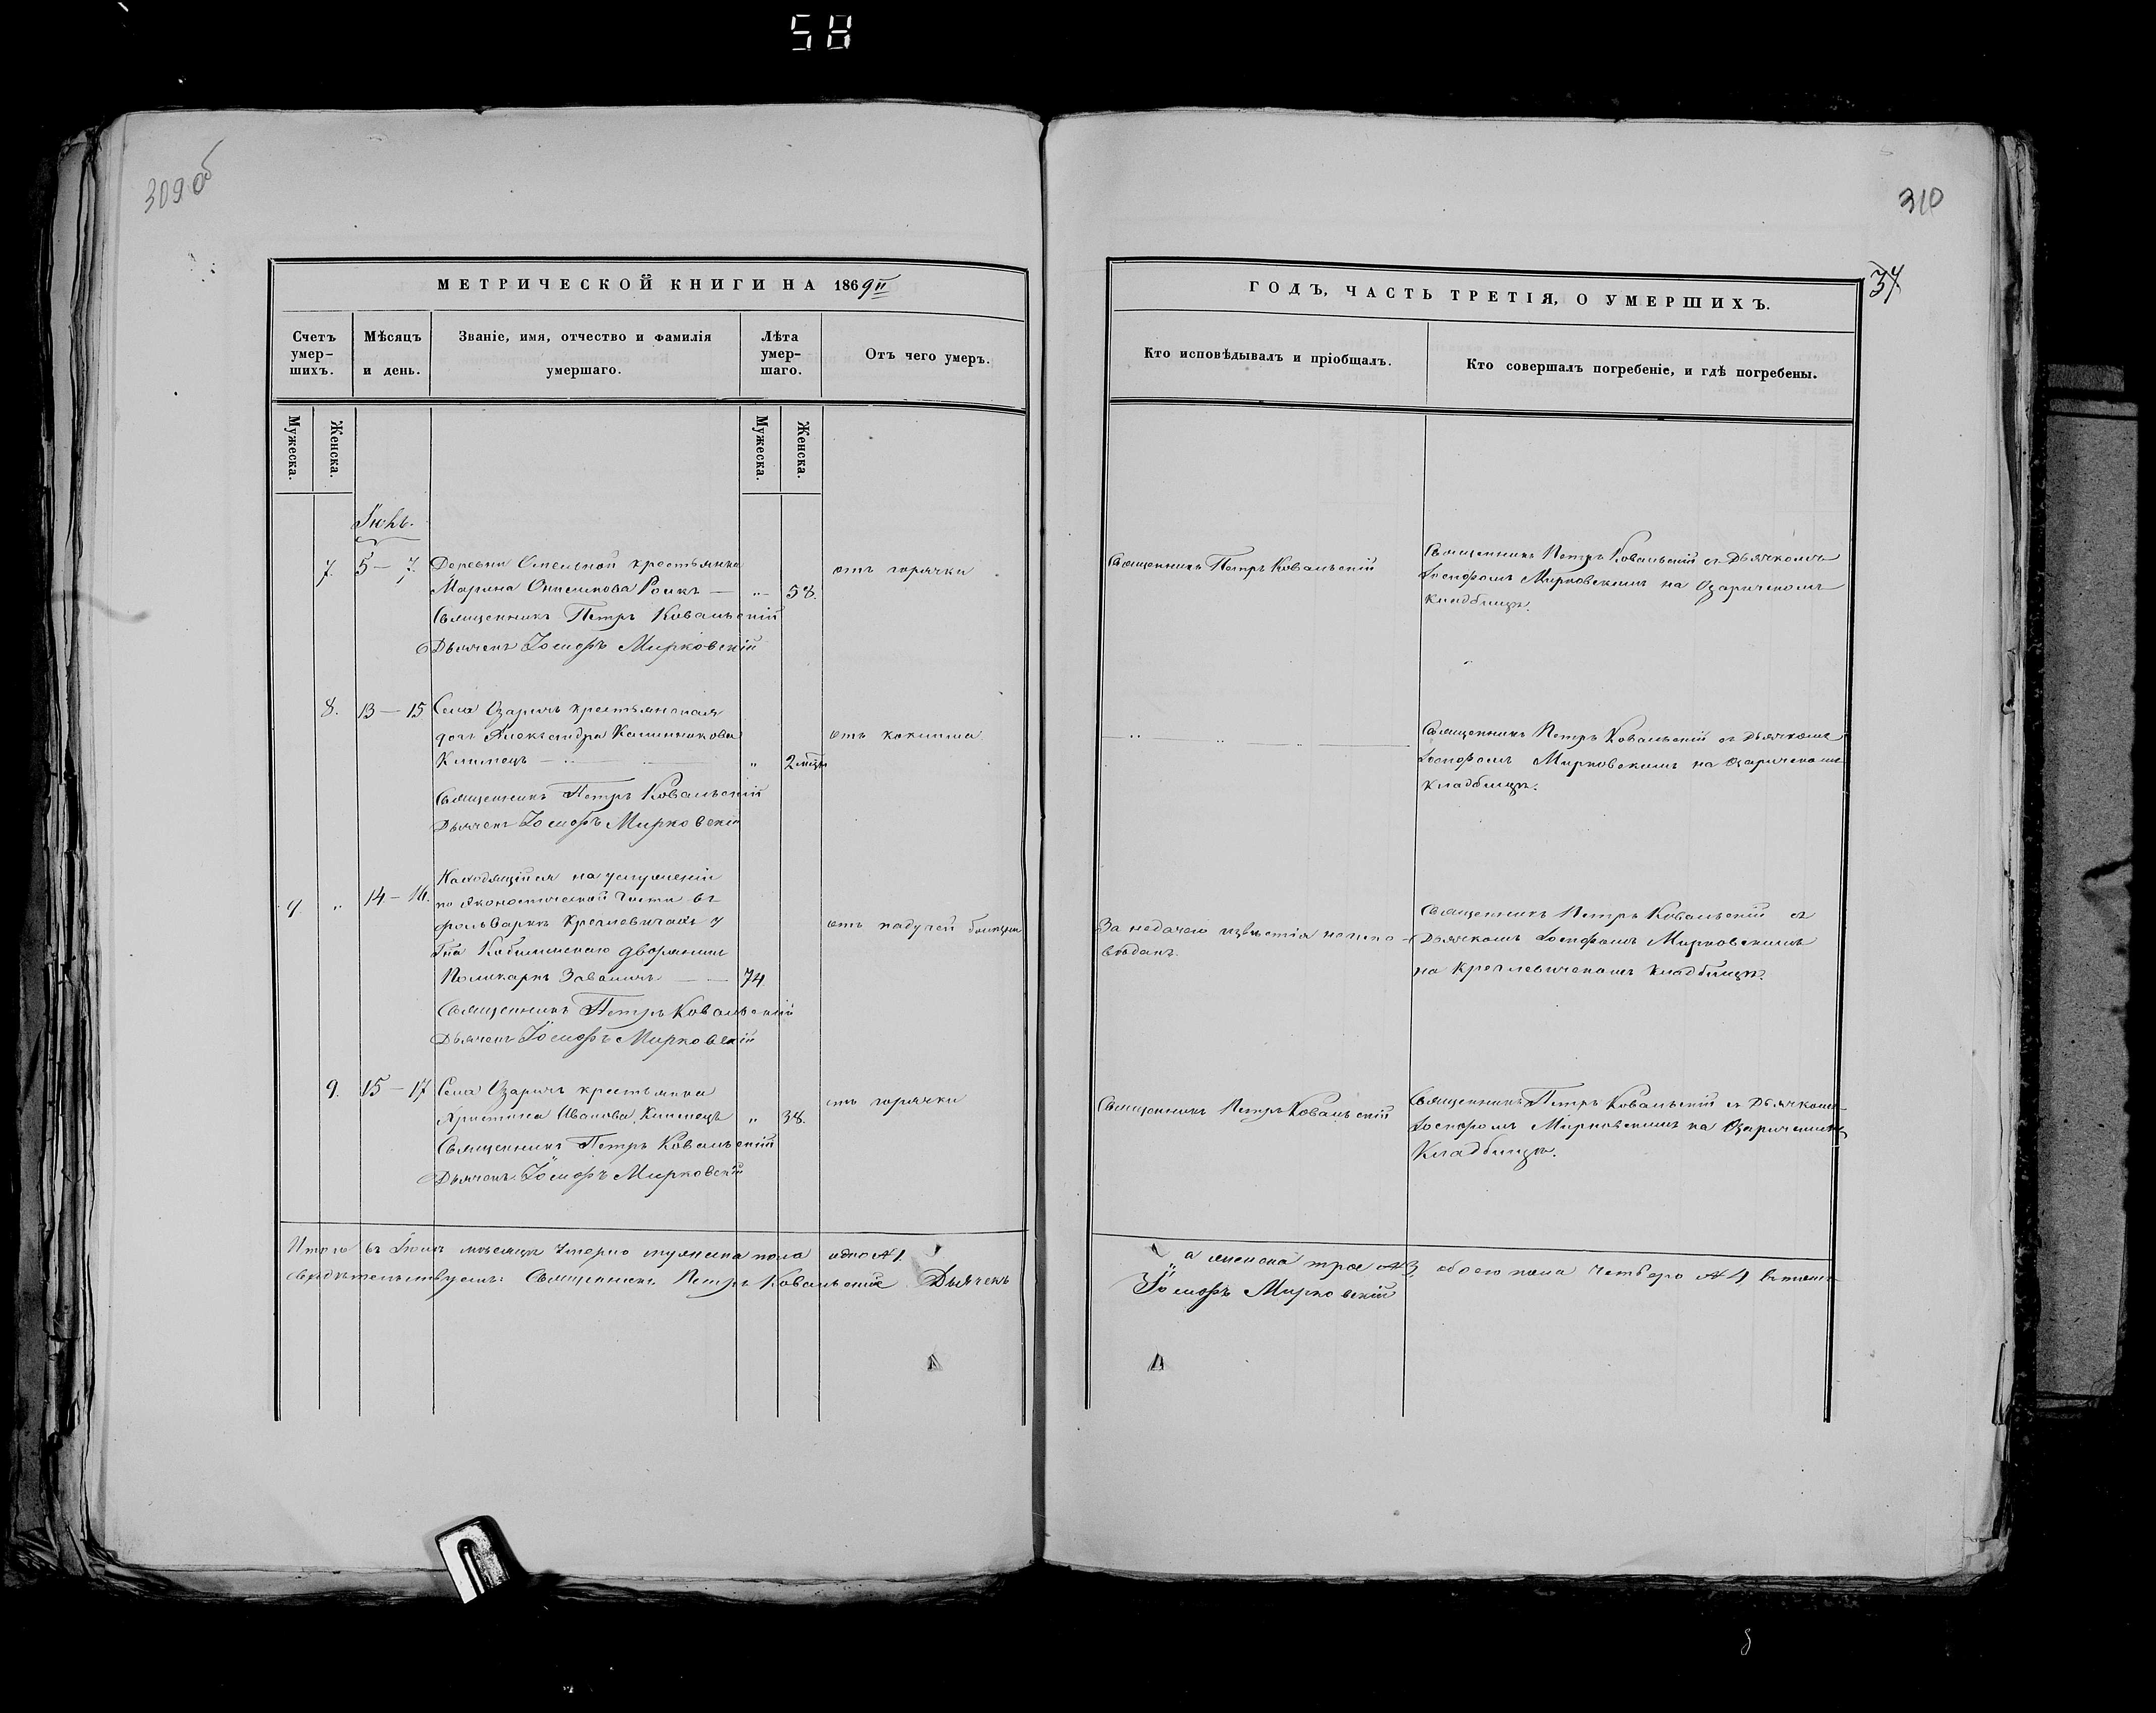 58
309 об
310
37
МЕТРИЧЕСКОЙ КНИГИ НА 1869й
ГОДЪ, ЧАСТЬ ТРЕТІЯ, О УМЕРШИХЪ.
Счетъ умер-
шихъ.
Мѣсяцъ
и день.
Званіе, имя, отчество и фамилія
умершаго.
Лѣта
умер-
шаго.
Отъ чего умеръ.
Кто исповѣдывалъ и пріобщалъ.
Кто совершалъ погребеніе, и гдѣ погребены.
Мужеска.
Женска.
Мужеска.
Женска.
7. 5 — 7. Деревни крестьянка
Марина Роикъ — „ 58.
отъ горячки
Священникъ Петръ Ковальскій
Дьячекъ Іосифъ Мирковскій
Священникъ Петръ Ковальскій
Священникъ Петръ Ковальскій съ Дьячкомъ
Іосифомъ Мирковскимъ на Озаричскомъ
кладбищѣ.
8. 13 — 15 Села Озаричъ крестьянская
дочь Александра Калинникова
Климецъ — „ 2 мѣц.
отъ коклюша
Священникъ Петръ Ковальскій
Дьячекъ Іосифъ Мирковскій
Священникъ Петръ Ковальскій съ Дьячкомъ
Іосифомъ Мирковскимъ на Озаричскомъ
кладбищѣ.
9. „ 14 — 16. Находящійся на услуженіи
по экономической части въ
фольваркѣ Кремлевичахъ у
Гна дворянинъ
Поликарпъ — 74
отъ падучей болѣзни
Священникъ Петръ Ковальскій
Дьячекъ Іосифъ Мирковскій
За недачею извѣстія неиспо-
вѣданъ.
Священникъ Петръ Ковальскій съ
Дьячкомъ Іосифомъ Мирковскимъ
на кладбищѣ.
9. 15 — 17 Села Озаричъ крестьянка
Христина Иванова Климецъ „ 38.
отъ горячки
Священникъ Петръ Ковальскій
Дьячекъ Іосифъ Мирковскій
Священникъ Петръ Ковальскій
Священникъ Петръ Ковальскій съ Дьячкомъ
Іосифомъ Мирковскимъ на Озаричскомъ
Кладбищѣ.
Итого въ мѣсяцѣ умерло мужеска пола одно № 1.
а женска трое № 3, обоего пола четверо № 4 въ томъ
свидѣтельствуемъ: Священникъ Петръ Ковальскій Дьячекъ
Іосифъ Мирковскій